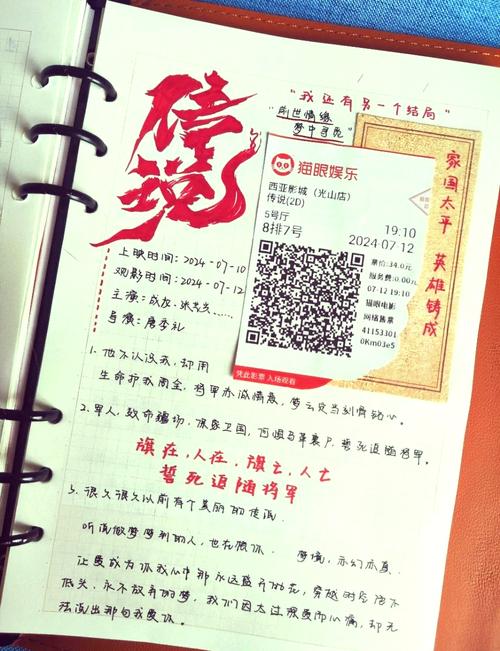 传说
"我还有另一个结局"
"前世情缘
梦中寻觅"
家国太平 英雄铸成
猫眼娱乐
西亚影城（光山店）
传说(2D)
5号厅
8排7号
19:10
2024-07-12
票价:34.0元
服务费:0.00元
07-12 19:10
猫眼电影
网络售票
41153301
0Km03e5
凭此影票 入场观看
上映时间:2024-07-10
观影时间:2024-07-12
主演:成龙.张艺兴……
导演:唐季礼
1. 他不认识我,却用
生命护我周全,将军赤诚情意,梦云定当刻骨铭心。
2. 军人,致命疆场,保家卫国,何惧马革裹尸,誓死追随将军。
旗在,人在,旗亡,人亡
誓死追随将军
3. 很久很久以前有个美丽的传说.
听说做梦梦到的人,也在想你. 梦境,亦幻亦真.
让爱成为你我心中那永远盛开的花,穿越时空绝不
低头,永不放弃的梦,我们因太过想爱而心痛,却无
法说出那句我爱你。